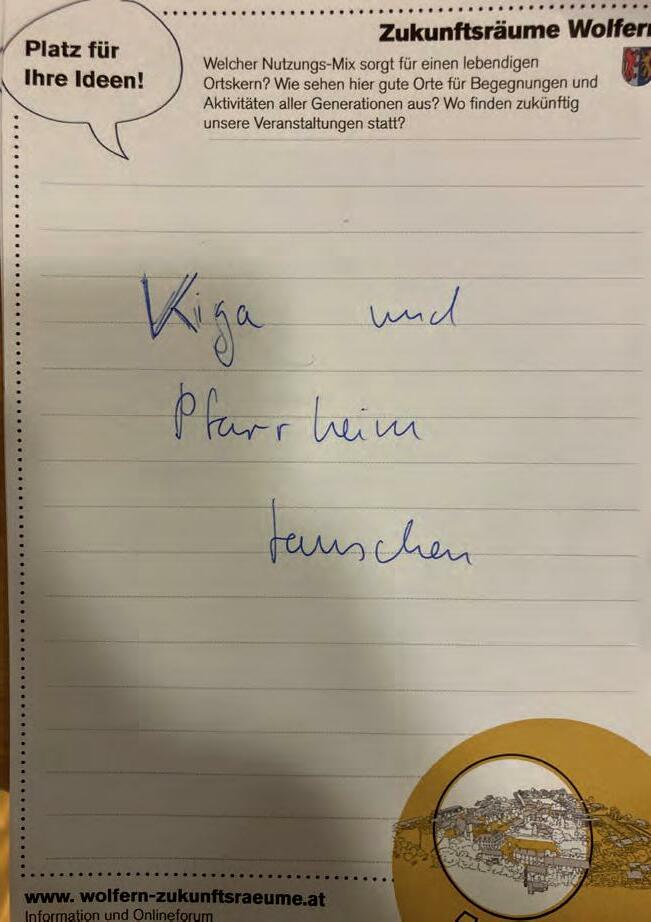 Platz für
Ihre Ideen!
Zukunftsräume Wolfern
Welcher Nutzungs-Mix sorgt für einen lebendigen
Ortskern? Wie sehen hier gute Orte für Begegnungen und
Aktivitäten aller Generationen aus? Wo finden zukünftig
unsere Veranstaltungen statt?
Kiga und
Pfarrheim
tauschen
www. wolfern-zukunftsraeume.at
Information und Onlineforum